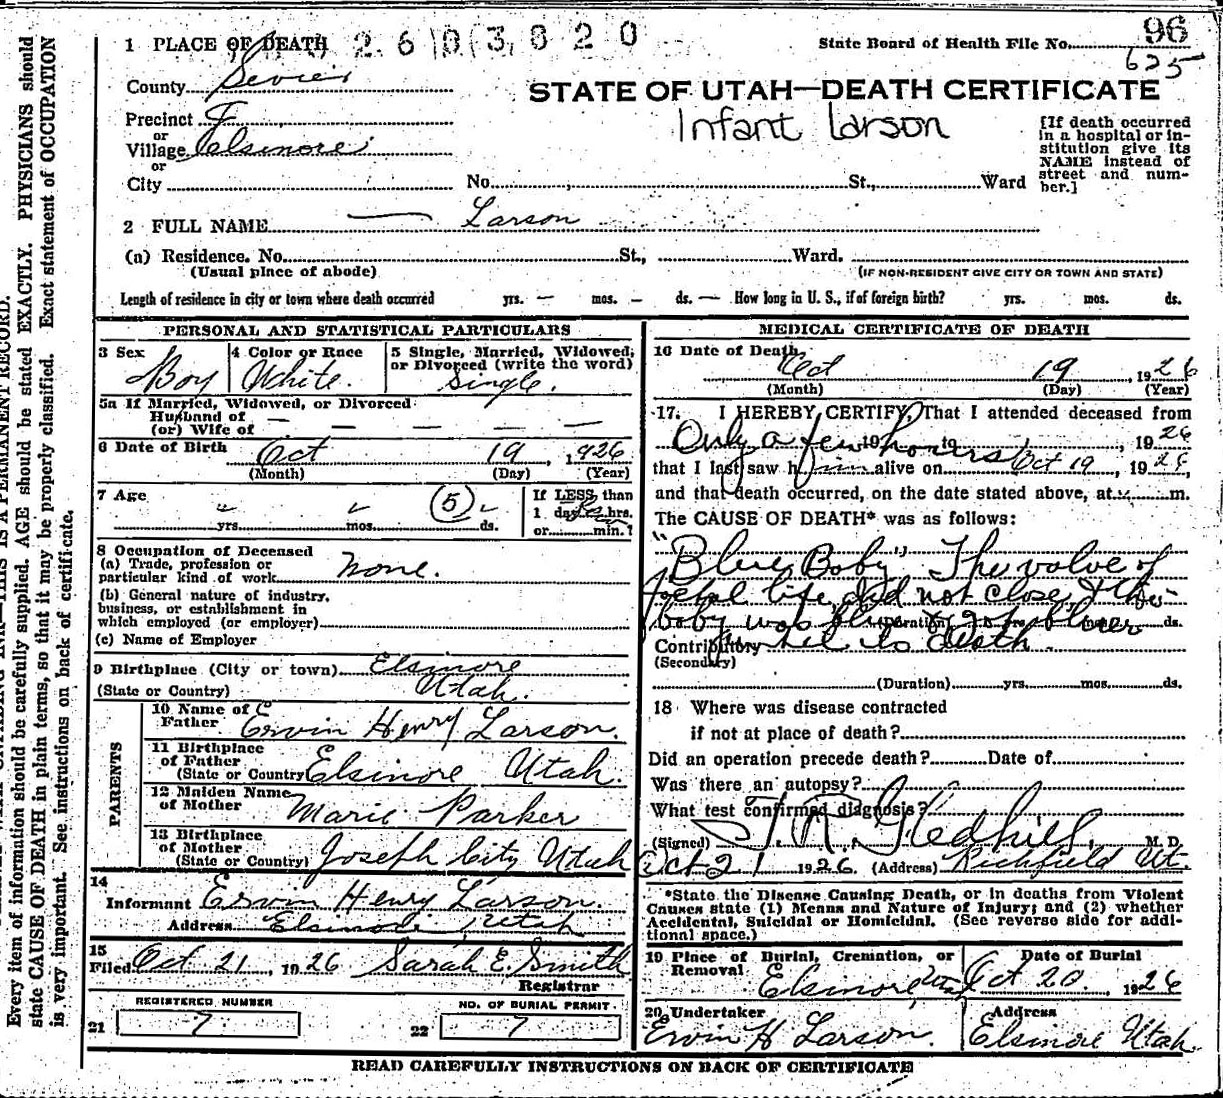 1 PLACE OF DEATH 2 6 0 3 8 2 0
State Board of Health File No. 96
625
County Sevier
STATE OF UTAH—DEATH CERTIFICATE
Infant Larson
Precinct
or
Village Elsinore
or
City No. St., Ward
[If death occurred
in a hospital or in-
stitution give its
NAME instead of
street and num-
ber.]
2 FULL NAME — Larson
(a) Residence. No. St., Ward.
(Usual place of abode) (IF NON-RESIDENT GIVE CITY OR TOWN AND STATE)
Length of residence in city or town where death occurred yrs. — mos. — ds. — How long in U. S., if of foreign birth? yrs. mos. ds.
PERSONAL AND STATISTICAL PARTICULARS
3 Sex Boy
4 Color or Race White.
5 Single, Married, Widowed,
or Divorced (write the word)
Single.
5a If Married, Widowed, or Divorced
Husband of —
(or) Wife of — — — —
6 Date of Birth Oct 19, 1926
(Month) (Day) (Year)
7 Age yrs. mos. (5) ds.
If LESS than
1 day hrs.
or min.?
8 Occupation of Deceased
(a) Trade, profession or
particular kind of work None.
(b) General nature of industry,
business, or establishment in
which employed (or employer)
(c) Name of Employer
9 Birthplace (City or town) Elsinore
(State or Country) Utah.
PARENTS
10 Name of
Father Ervin Henry Larson.
11 Birthplace
of Father
(State or Country Elsinore Utah.
12 Maiden Name
of Mother Marie Parker
13 Birthplace
of Mother
(State or Country) Joseph City Utah
14
Informant Ervin Henry Larson.
Address Elsinore, Utah
15
Filed Oct 21, 1926 Sarah E. Smith
Registrar
REGISTERED NUMBER NO. OF BURIAL PERMIT
21 7 22 7
MEDICAL CERTIFICATE OF DEATH
16 Date of Death
Oct 19, 1926
(Month) (Day) (Year)
17. I HEREBY CERTIFY, That I attended deceased from
Only a few hours 19 to , 1926
that I last saw him alive on Oct 19, 1926
and that death occurred, on the date stated above, at m.
The CAUSE OF DEATH* was as follows:
"Blue Baby" The valve of
foetal life did not close & the
baby was blue & got bluer
(Duration) yrs. ds.
Contributory until to death.
(Secondary)
(Duration) yrs. mos. ds.
18 Where was disease contracted
if not at place of death?
Did an operation precede death? Date of
Was there an autopsy?
What test confirmed diagnosis?
(Signed) J. R. Gledhill, M. D.
Oct 21 1926 (Address) Richfield Ut.
*State the Disease Causing Death, or in deaths from Violent
Causes state (1) Means and Nature of Injury; and (2) whether
Accidental, Suicidal or Homicidal. (See reverse side for addi-
tional space.)
19 Place of Burial, Cremation, or
Removal Elsinore Utah
Date of Burial
Oct 20, 1926
20 Undertaker
Ervin H Larson.
Address
Elsinore Utah.
READ CAREFULLY INSTRUCTIONS ON BACK OF CERTIFICATE
THIS IS A PERMANENT RECORD.
Every item of information should be carefully supplied. AGE should be stated EXACTLY. PHYSICIANS should
state CAUSE OF DEATH in plain terms, so that it may be properly classified. Exact statement of OCCUPATION
is very important. See instructions on back of certificate.